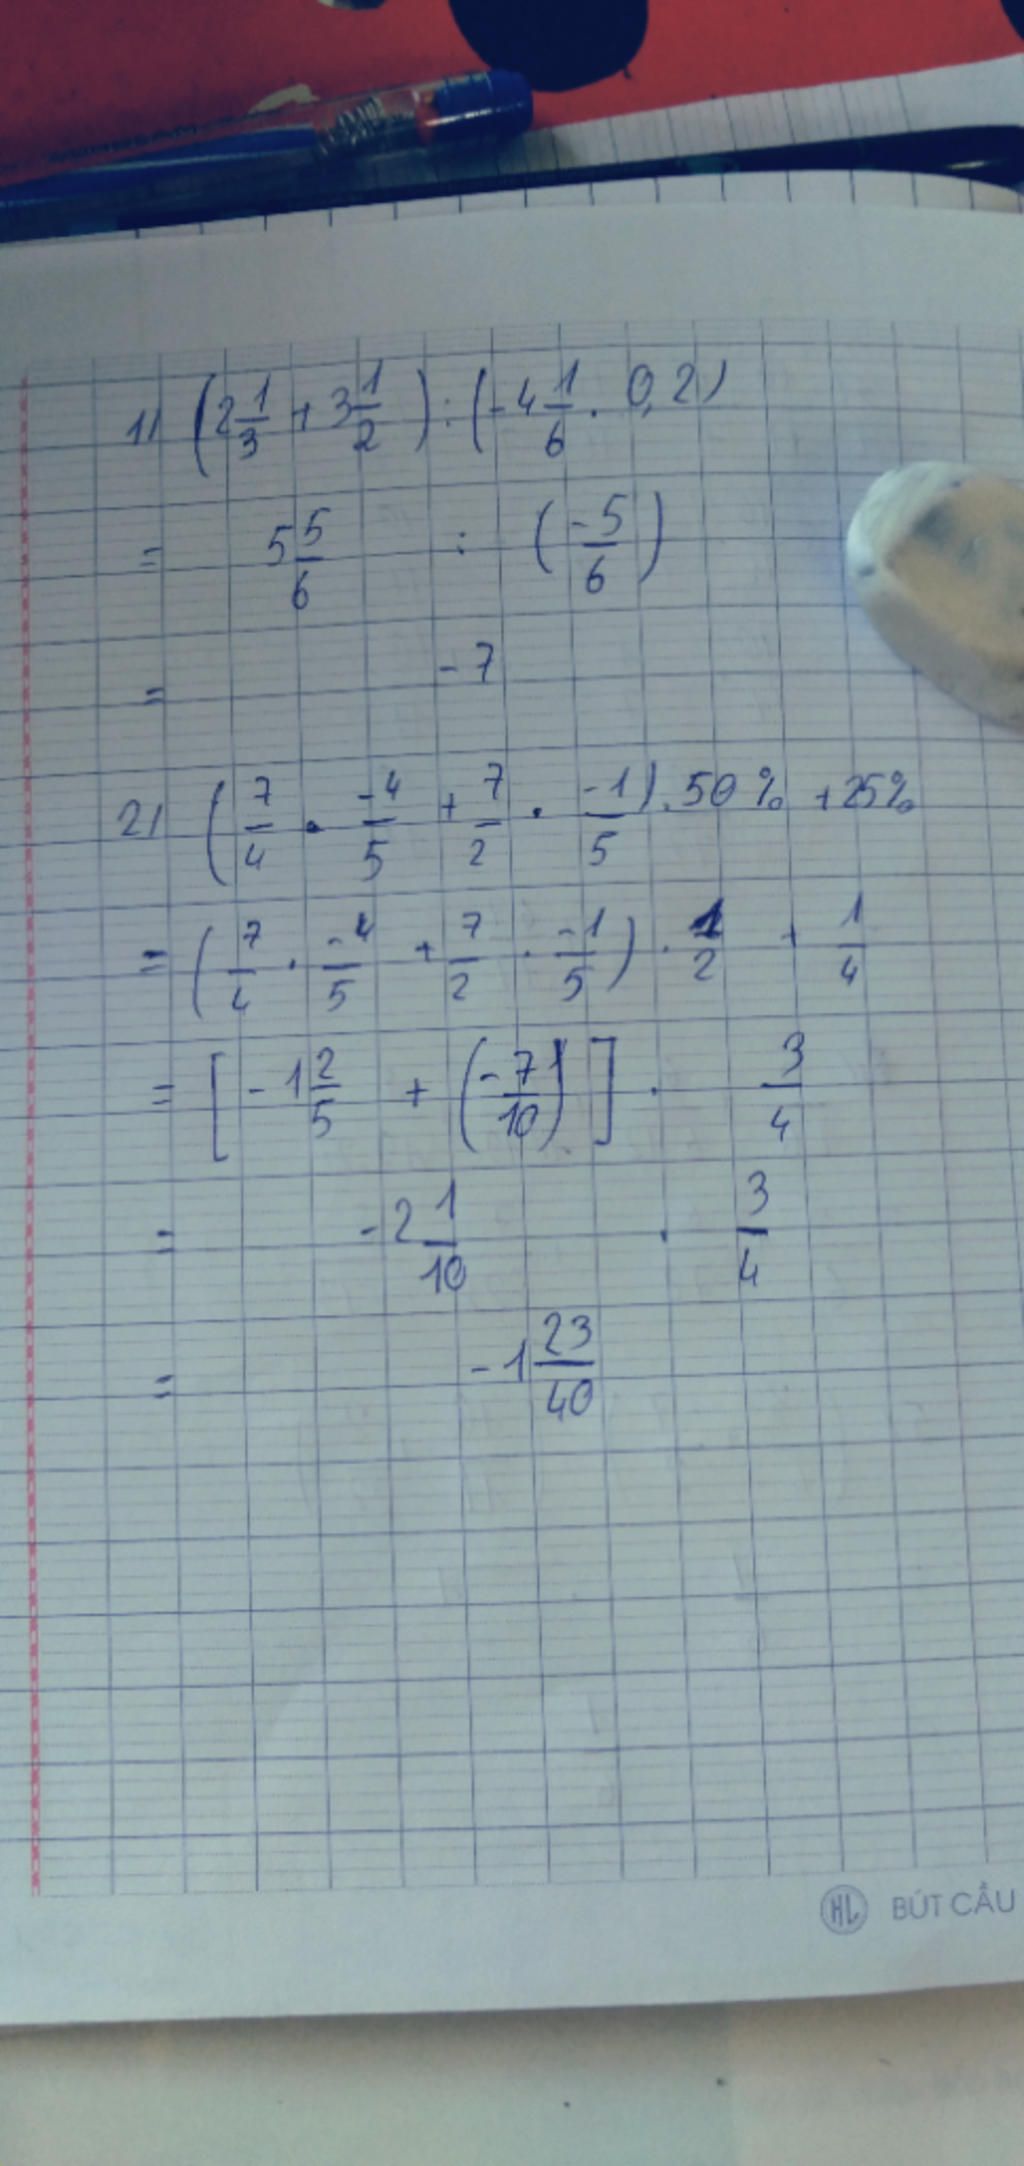 1) (2 1/3 + 3 1/2) : (-4 1/6 . 0,2)
= 5 5/6 : (-5/6)
= -7
2) (7/4 . -4/5 + 7/2 . -1/5) . 50% + 25%
= (7/4 . -4/5 + 7/2 . -1/5) . 1/2 + 1/4
= [-1 2/5 + (-7/10)] . 3/4
= -2 1/10 . 3/4
= -1 23/40
HL BÚT CẦU